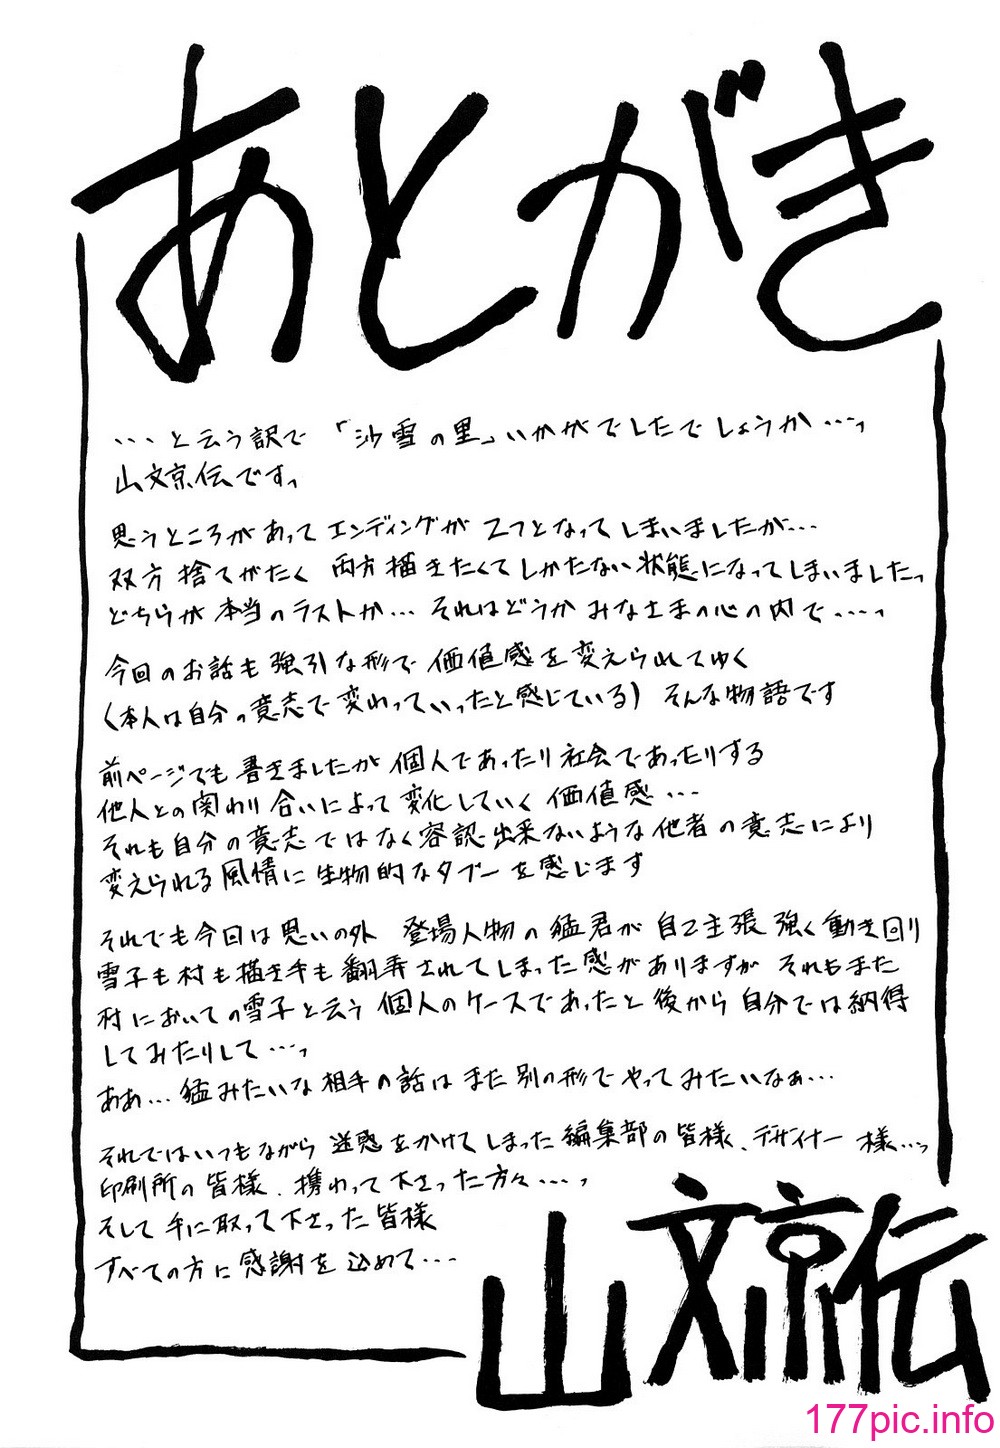 あとがき
…と云う訳で 「沙雪の里」いかがでしたでしょうか…っ
山文京伝ですっ
思うところがあって エンディングが 2つとなって しまいましたが…
双方 捨てがたく 両方 描きたくてしかたない状態になってしまいましたっ
どちらが 本当のラストか… それはどうか みなさまの心の内で…っ
今回のお話も 強引な形で 価値感を変えられてゆく
(本人は自分の意志で 変わっていったと感じている) そんな物語です
前ページでも 書きましたが 個人であったり 社会であったりする
他人との関わり合いによって 変化していく 価値感…
それも自分の意志ではなく容認出来ないような他者の意志により
変えられる風情に 生物的なタブーを感じます
それでも今回は思いの外 登場人物の猛君が 自己主張 強く動き回り
雪子も村も描き手も翻弄されてしまった感がありますが それもまた
村においての雪子と云う 個人のケースであったと 後から 自分では納得
してみたりして…っ
ああ…猛みたいな相手の話は また別の形で やってみたいなぁ…
それではいつもながら 迷惑をかけてしまった編集部の皆様、デザイナー様…っ
印刷所の皆様、携わって下さった方々…っ
そして 手に取って下さった皆様
すべての方に感謝を込めて…
山文京伝
177pic.info